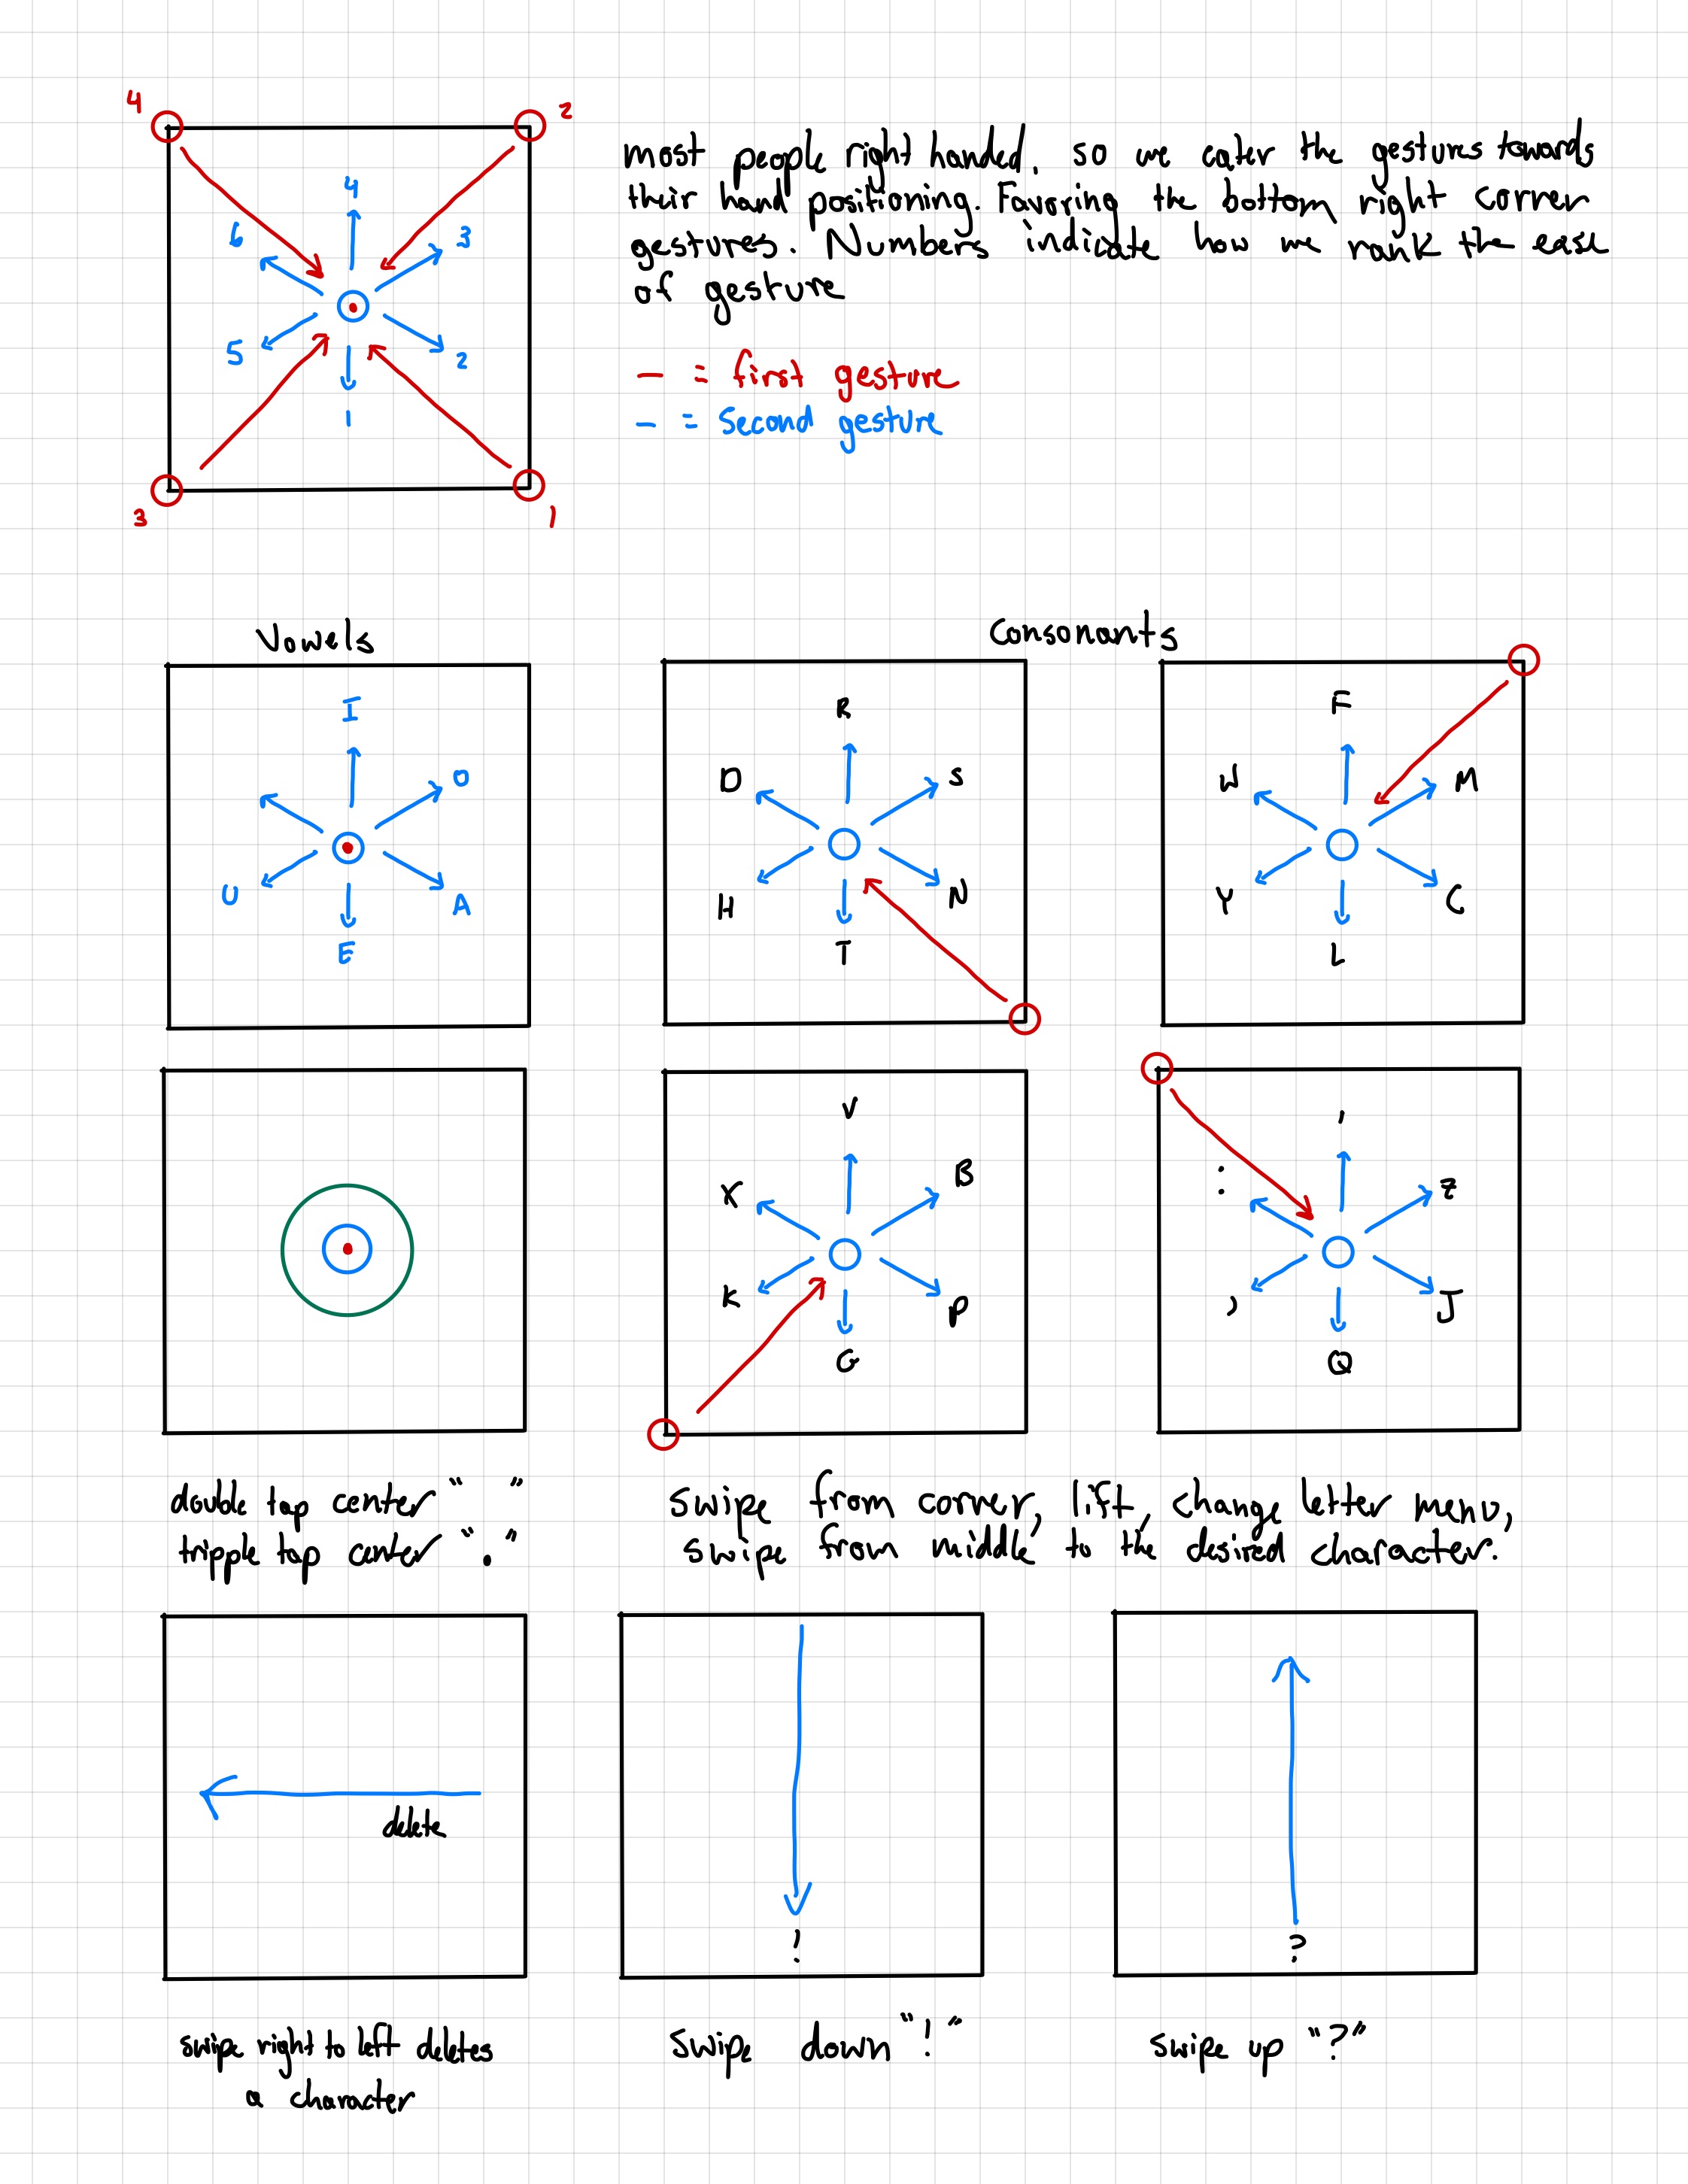 4
2
most people right handed, so we cater the gestures towards
their hand positioning. Favoring the bottom right corner
gestures. Numbers indicate how we rank the ease
of gesture
4
6
3
5
2
1
- = first gesture
- = second gesture
3
1
Vowels
Consonants
I
O
U
A
E
R
D
S
H
N
T
F
W
M
Y
C
L
V
X
B
K
P
G
'
:
Z
,
J
Q
double tap center " "
tripple tap center "."
swipe from corner, lift, change letter menu,
swipe from middle to the desired character.
delete
!
?
swipe right to left deletes
a character
swipe down "!"
swipe up "?"